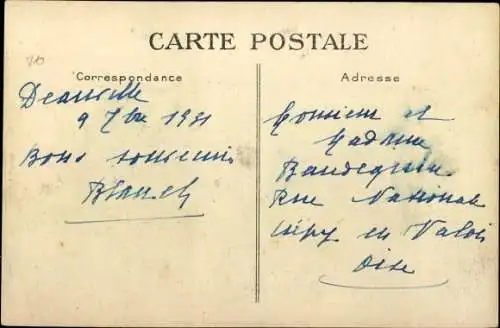 CARTE POSTALE
Correspondance
Adresse
Deauville
9 7bre 1931
Bons souvenirs
Blanch
Monsieur et
Madame
Baudequin
Rue Nationale
Crépy en Valois
Oise